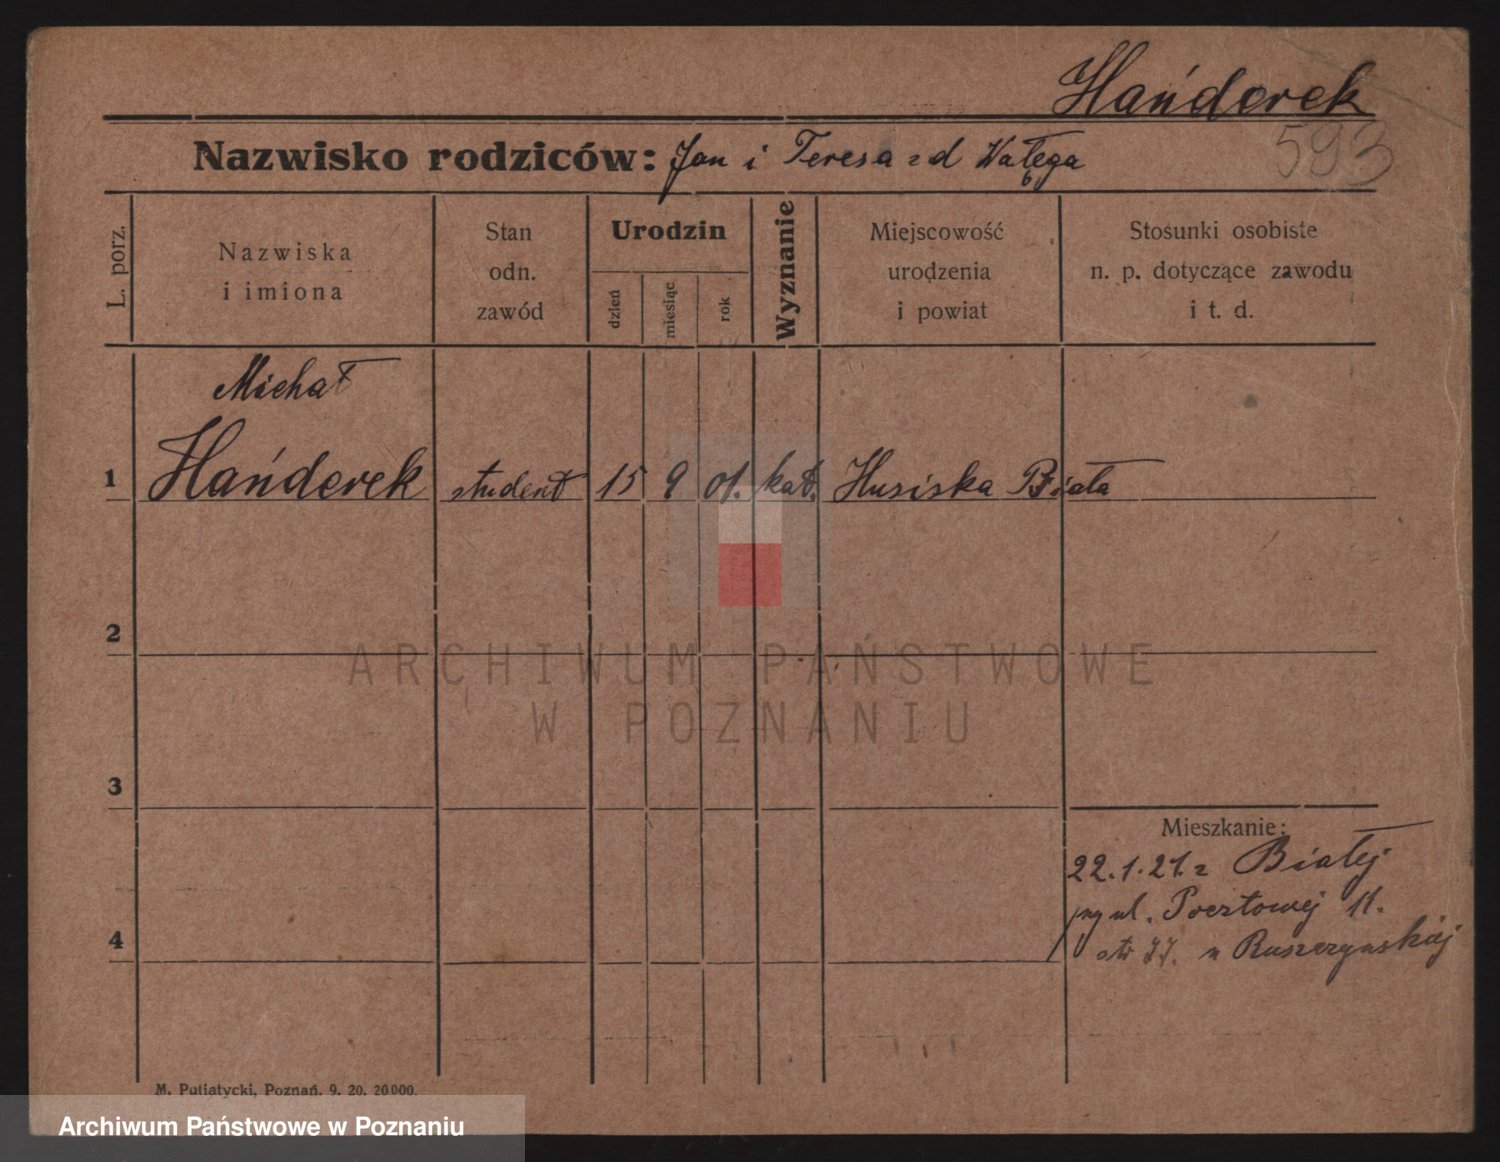 Hańderek
593
Nazwisko rodziców: Jan i Teresa zd Wałęga
L. porz.
Nazwiska
i imiona
Stan
odn.
zawód
Urodzin
dzień
miesiąc
rok
Wyznanie
Miejscowość
urodzenia
i powiat
Stosunki osobiste
n. p. dotyczące zawodu
i t. d.
Michał
1 Hańderek student 15 9 01. kat. Husiska Biała
2
ARCHIWUM PAŃSTWOWE
W POZNANIU
3
Mieszkanie:
22.1.21. z Białej
ul. Pocztowej 11.
4
u Ruszczyńskiej
M. Putiatycki, Poznań. 9. 20. 20000.
Archiwum Państwowe w Poznaniu